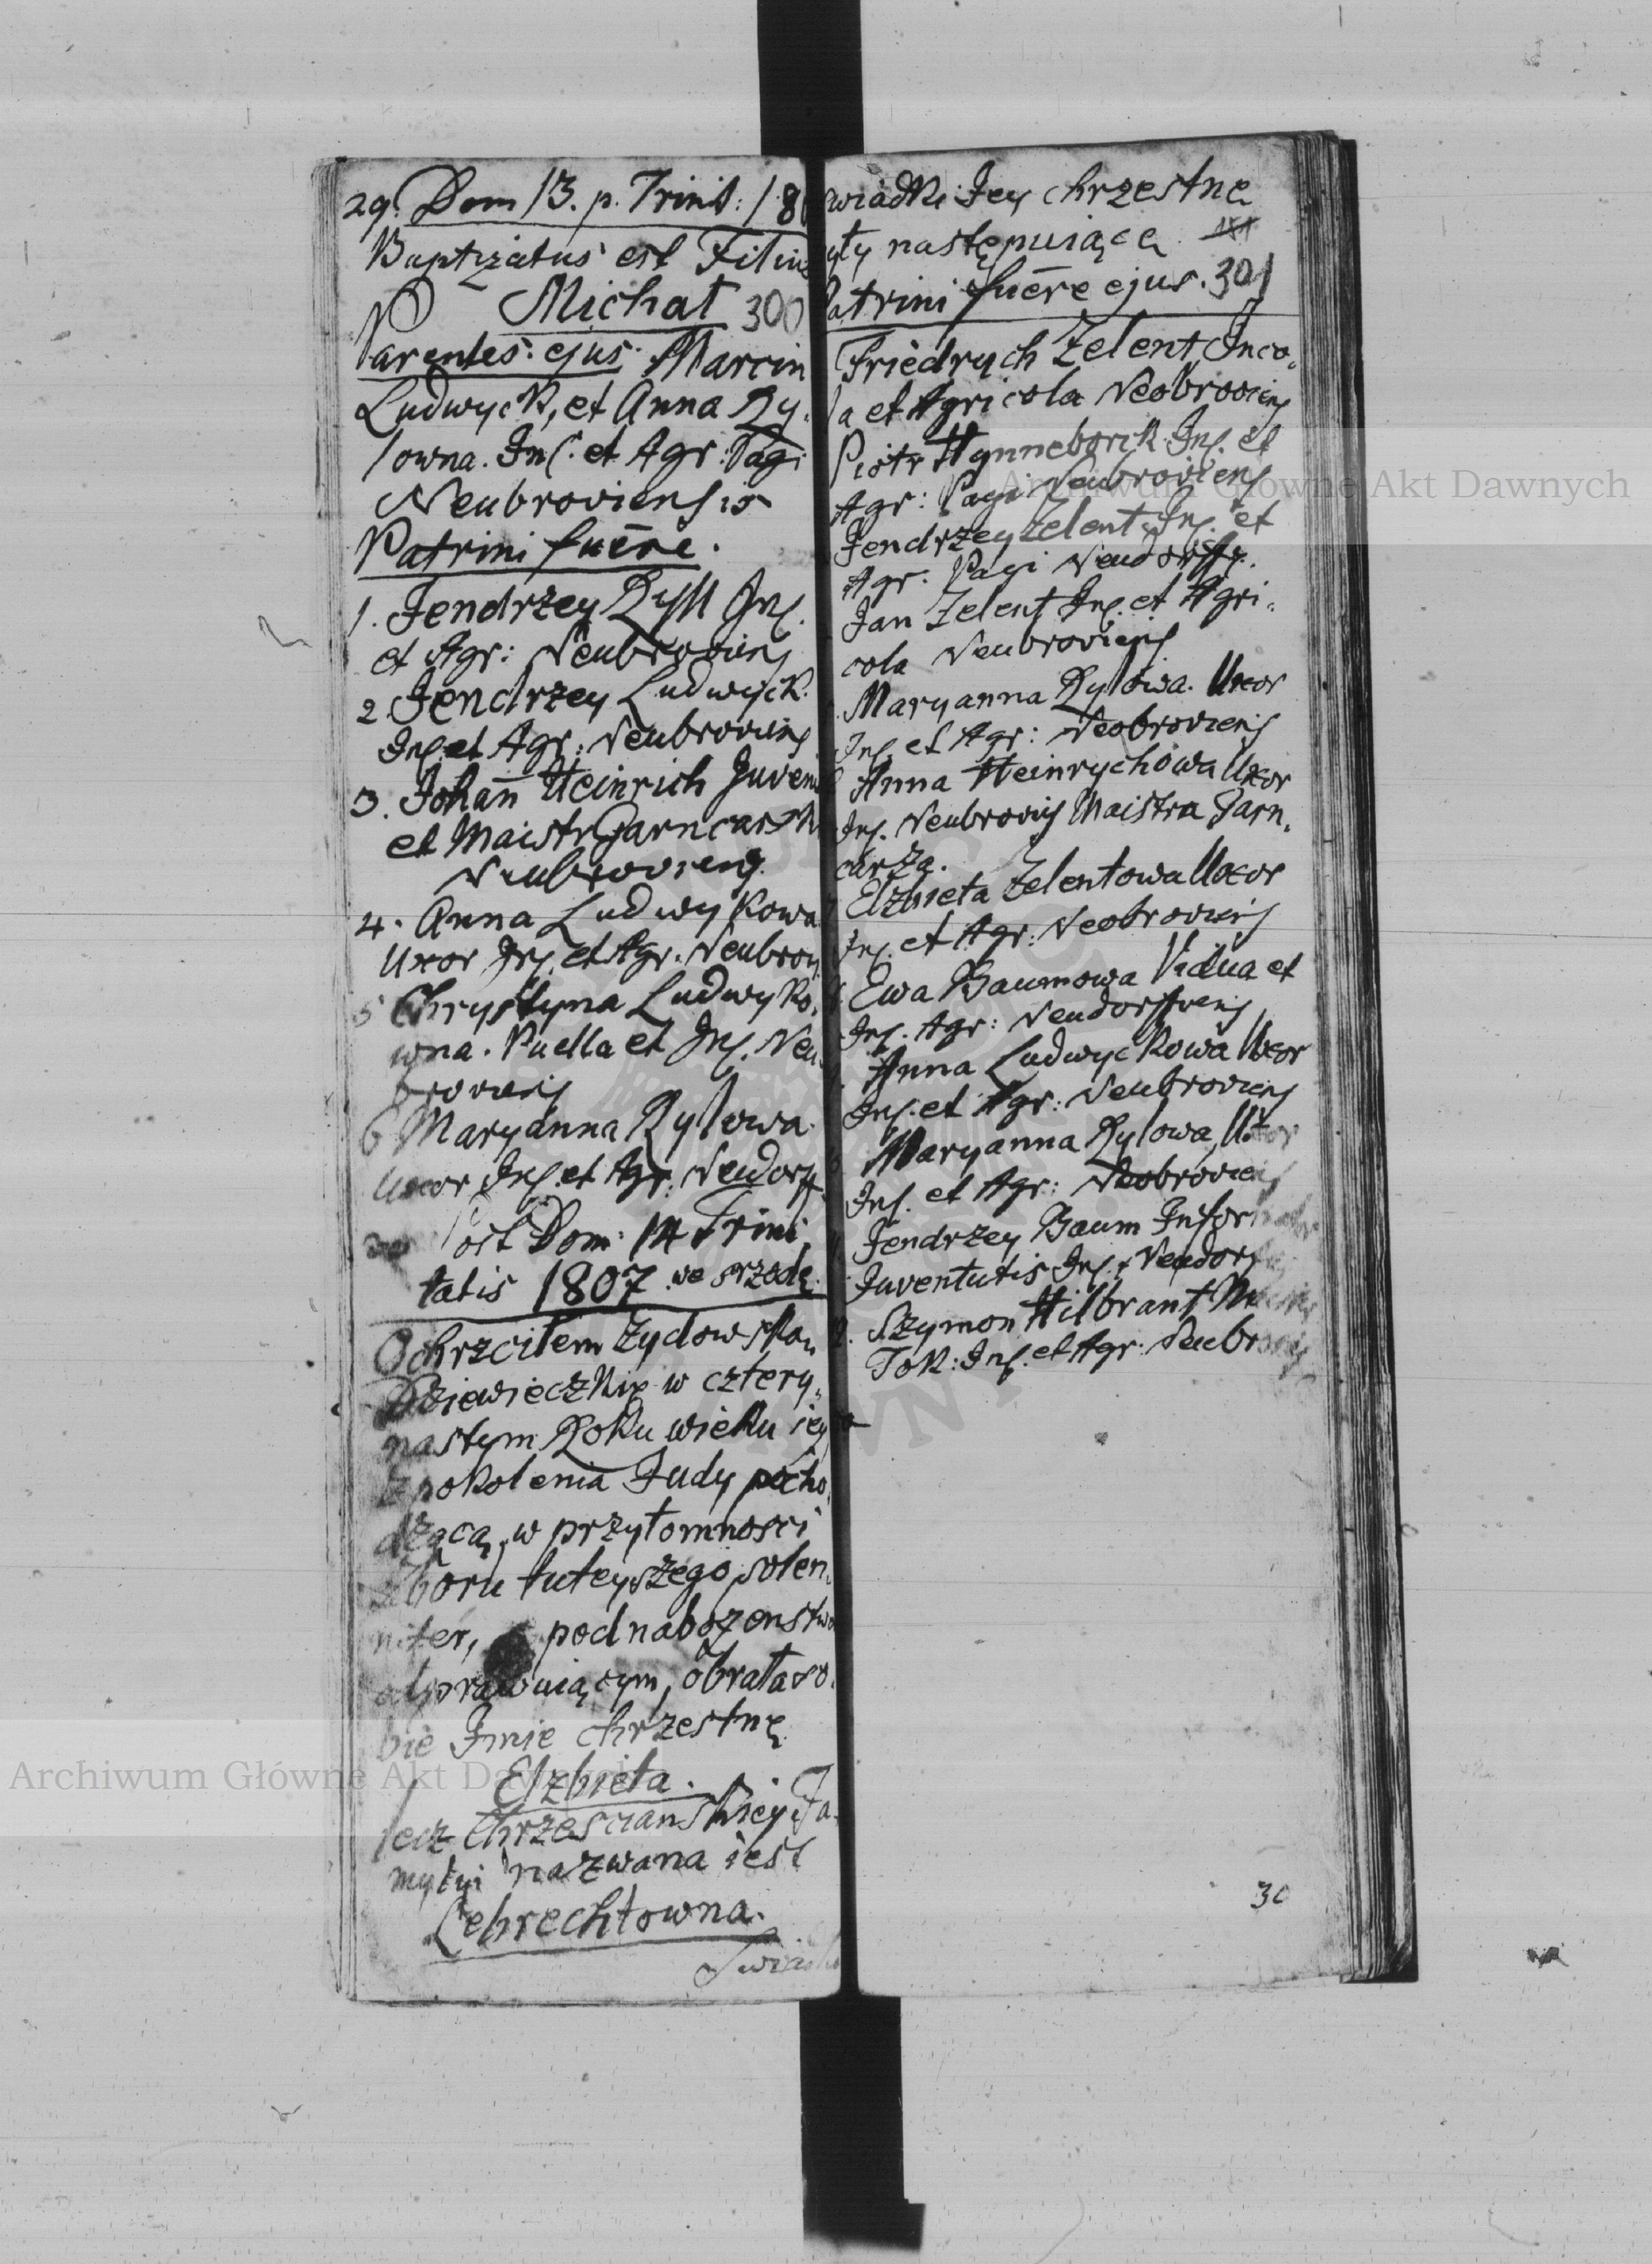 29. Dom 13. p. Trinit: 18
Baptizatus est Filius
Michał 300
Parentes ejus Marcin
Ludwyck, et Anna Ry,
lowna. Inc. et Agr: Pagi
Neubroviensis
Patrini fuere.
1. Jendrzey Ryll Inc.
et Agr: Neubroviens
2. Jendrzey Ludwyck.
Inc. et Agr: Neubroviens
3. Johan̄ Heinrich Juven
et Maistr Garncarsk
Neubroviens.
4. Anna Ludwykowa
Uxor Inc. et Agr. Neubrov
5 Chrystyna Ludwyko,
wna. Puella et Inc. Neu,
broviens
6 Maryanna Rylowa
Uxor Inc. et Agr: Neudorf
Post Dom: 14 Trini,
tatis 1807 we srzodę.
Ochrzciłem żydowską
Dziewieczkię w cztery,
nastym Roku wieku iey
z pokolenia Judy pocho,
dzącą, w przytomnosci
zboru tuteyszego solen,
niter, pod nabozenstwo
odprawuiącym, obrała so,
bie Imie chrzestnę
Elzbieta.
lecz Chrzescianskiey Fa,
mylyi nazwana iest
Lebrechtowna.
Swiadk
wiadki Jey chrzestnę
yły następuiącę
atrini fuere ejus. 301
Friedrych Zelent, Inco,
la et Agricola Neobroviens
Piotr Hynneborck Inc. et
Agr: Pagi Neubroviens
Jendrzey Zelent, Inc. et
Agr: Pagi Neudorff.
Jan Zelent Inc. et Agri,
cola Neubroviens
Maryanna Rylowa. Uxor
Inc. et Agr: Neobroviens
Anna Heinrychowa Uxor
Inc. Neubroviens Maistra Garn,
carza.
Elzbieta Zelentowa Uxor
Inc. et Agr: Neobroviens
Ewa Baumowa Vidua et
Inc. Agr: Neudorffiens
Anna Ludwyckowa Uxor
Inc. et Agr: Neubroviens
Maryanna Rylowa, Uxor
Inc. et Agr: Neobroviens
Jendrzey Baum Infor
Juventutis Inc. Neudorf
Szymon Hilbrant
Tok: Inc. et Agr: Neubro
30
Archiwum Główne Akt Dawnych
Archiwum Główne Akt Dawnych